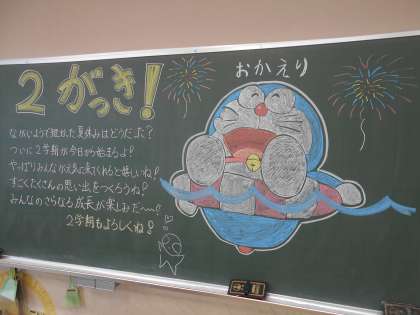 2がっき!
おかえり
ながいようで短かった夏休みはどうだった?
ついに2学期が今日から始まるよ!
やっぱりみんなが元気に来てくれると嬉しいね!
すごくたくさんの思い出をつくろうね!
みんなのさらなる成長が楽しみだ〜!
2学期もよろしくね!